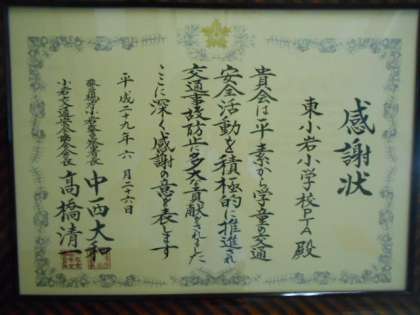 感謝状
東小岩小学校PTA殿
貴会は平素から学童の交通
安全活動を積極的に推進され
交通事故防止に多大な貢献をされました
ここに深く感謝の意を表します
平成二十九年六月二十六日
警視庁小岩警察署長 中西大和
小岩交通安全協会会長 高橋清一